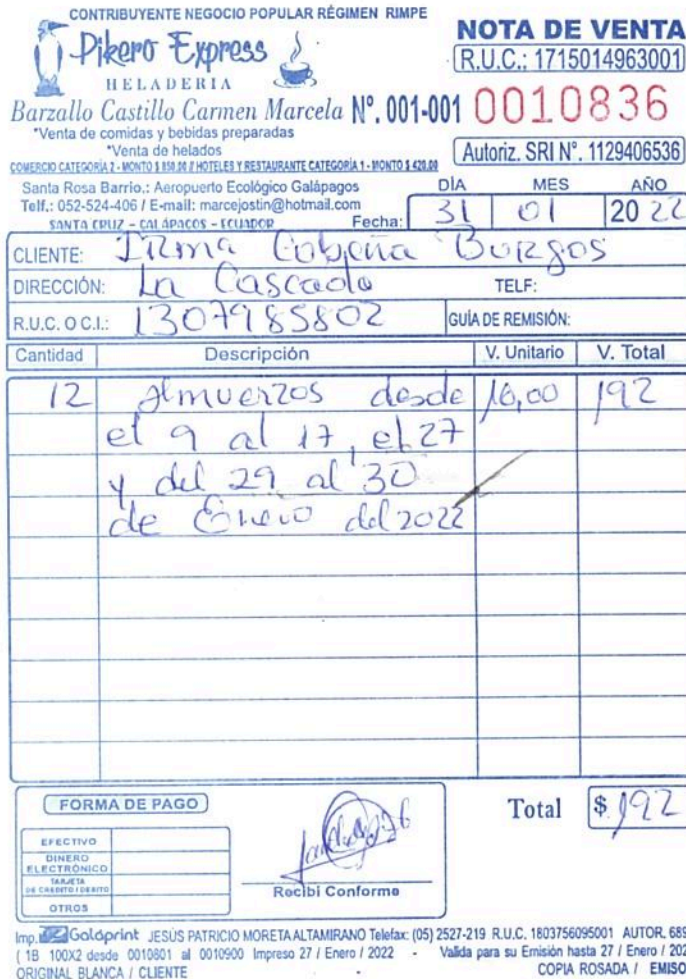 CONTRIBUYENTE NEGOCIO POPULAR RÉGIMEN RIMPE
Pikero Express
HELADERIA
Barzallo Castillo Carmen Marcela
*Venta de comidas y bebidas preparadas
*Venta de helados
COMERCIO CATEGORÍA 2 - MONTO $ 850.00 / HOTELES Y RESTAURANTE CATEGORÍA 1 - MONTO $ 420.00
Santa Rosa Barrio.: Aeropuerto Ecológico Galápagos
Telf.: 052-524-406 / E-mail: marcejostin@hotmail.com
SANTA CRUZ - GALÁPAGOS - ECUADOR
NOTA DE VENTA
R.U.C.: 1715014963001
Nº. 001-001 0010836
Autoriz. SRI Nº. 1129406536
DÍA MES AÑO
Fecha: 31 01 2022
CLIENTE: Irma Cobeña Burgos
DIRECCIÓN: La Cascada TELF:
R.U.C. O C.I.: 1307985802 GUÍA DE REMISIÓN:
Cantidad Descripción V. Unitario V. Total
12 Almuerzos desde 16,00 192
el 9 al 17, el 27
y del 29 al 30
de Enero del 2022
FORMA DE PAGO
EFECTIVO
DINERO ELECTRÓNICO
TARJETA DE CRÉDITO / DÉBITO
OTROS
Recibi Conforme
Total $ 192
Imp. Galáprint JESÚS PATRICIO MORETA ALTAMIRANO Telefax: (05) 2527-219 R.U.C. 1803756095001 AUTOR. 689
( 1B 100X2 desde 0010801 al 0010900 Impreso 27 / Enero / 2022 - Valida para su Emisión hasta 27 / Enero / 202
ORIGINAL BLANCA / CLIENTE - COPIA ROSADA / EMISO